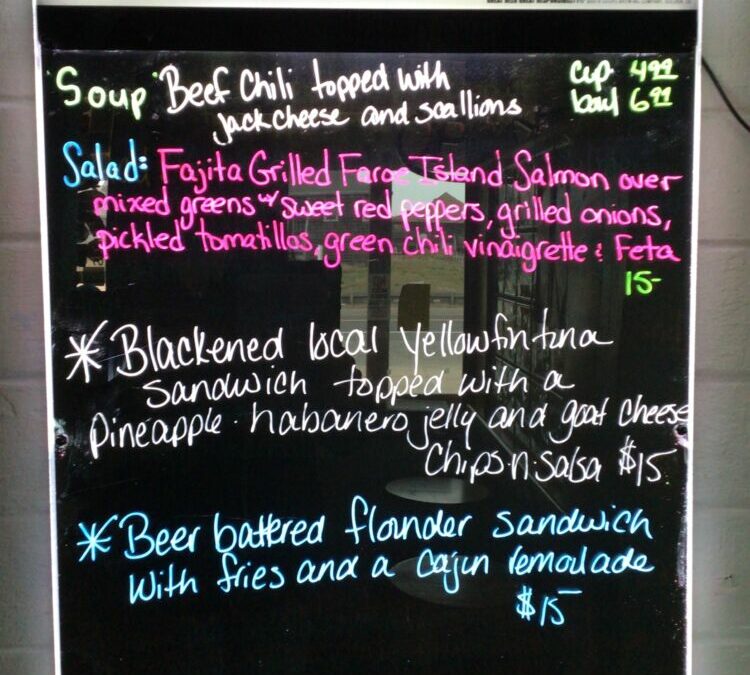 Soup Beef Chili topped with cup 4.99
jack cheese and scallions bowl 6.99
Salad: Fajita Grilled Faroe Island Salmon over
mixed greens w/ sweet red peppers, grilled onions,
pickled tomatillos, green chili vinaigrette & Feta
15-
* Blackened local yellowfin tuna
sandwich topped with a
pineapple-habanero jelly and goat cheese
Chips-n-salsa $15
* Beer battered flounder sandwich
with fries and a cajun remoulade
$15-